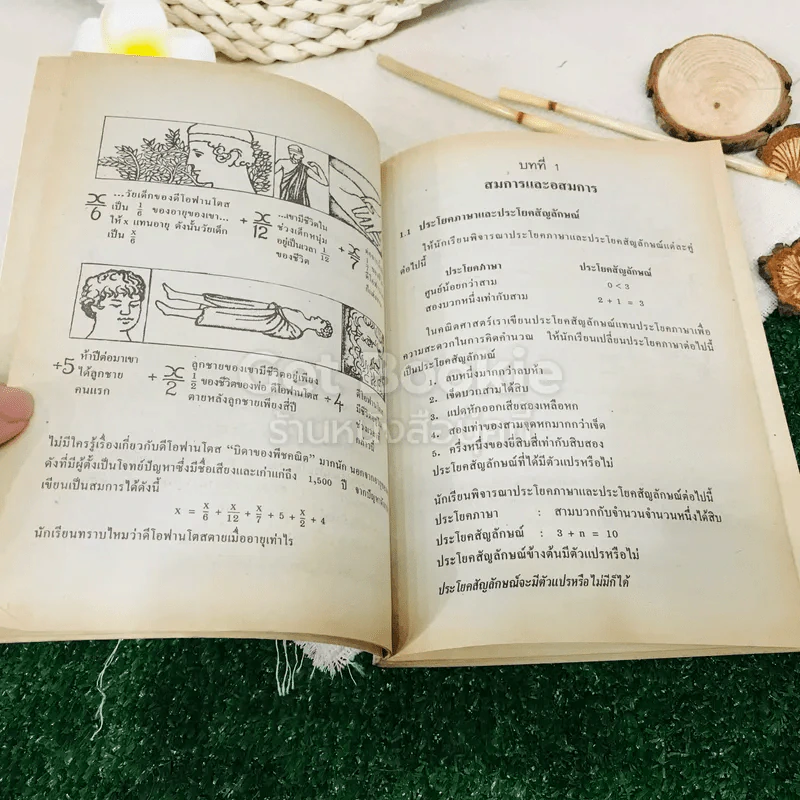 ...วัยเด็กของดีโอฟานโตส
เป็น 1/6 ของอายุของเขา...
ให้ x แทนอายุ ดังนั้นวัยเด็ก
เป็น x/6
x/6
+ x/12
...เขามีชีวิตใน
ช่วงเด็กหนุ่ม
อยู่เป็นเวลา 1/12
ของชีวิต
+ x/7
+5
ห้าปีต่อมาเขา
ได้ลูกชาย
คนแรก
+ x/2
ลูกชายของเขามีชีวิตอยู่เพียง
1/2 ของชีวิตของพ่อ ดีโอฟานโตส
ตายหลังลูกชายเพียงสี่ปี
+4
ไม่มีใครรู้เรื่องเกี่ยวกับดีโอฟานโตส “บิดาของพีชคณิต” มากนัก นอกจาก
ดังที่มีผู้ตั้งเป็นโจทย์ปัญหาซึ่งมีชื่อเสียงและเก่าแก่ถึง 1,500 ปี
เขียนเป็นสมการได้ดังนี้
x = x/6 + x/12 + x/7 + 5 + x/2 + 4
นักเรียนทราบไหมว่าดีโอฟานโตสตายเมื่ออายุเท่าไร
บทที่ 1
สมการและอสมการ
1.1 ประโยคภาษาและประโยคสัญลักษณ์
ให้นักเรียนพิจารณาประโยคภาษาและประโยคสัญลักษณ์แต่ละคู่
ต่อไปนี้
ประโยคภาษา ประโยคสัญลักษณ์
ศูนย์น้อยกว่าสาม 0 < 3
สองบวกหนึ่งเท่ากับสาม 2 + 1 = 3
ในคณิตศาสตร์เราเขียนประโยคสัญลักษณ์แทนประโยคภาษาเพื่อ
ความสะดวกในการคิดคำนวณ ให้นักเรียนเปลี่ยนประโยคภาษาต่อไปนี้
เป็นประโยคสัญลักษณ์
1. ลบหนึ่งมากกว่าลบห้า
2. เจ็ดบวกสามได้สิบ
3. แปดหักออกเสียสองเหลือหก
4. สองเท่าของสามจุดหกมากกว่าเจ็ด
5. ครึ่งหนึ่งของยี่สิบสี่เท่ากับสิบสอง
ประโยคสัญลักษณ์ที่ได้มีตัวแปรหรือไม่
นักเรียนพิจารณาประโยคภาษาและประโยคสัญลักษณ์ต่อไปนี้
ประโยคภาษา : สามบวกกับจำนวนจำนวนหนึ่งได้สิบ
ประโยคสัญลักษณ์ : 3 + n = 10
ประโยคสัญลักษณ์ข้างต้นมีตัวแปรหรือไม่
ประโยคสัญลักษณ์จะมีตัวแปรหรือไม่มีก็ได้
Get Bookie